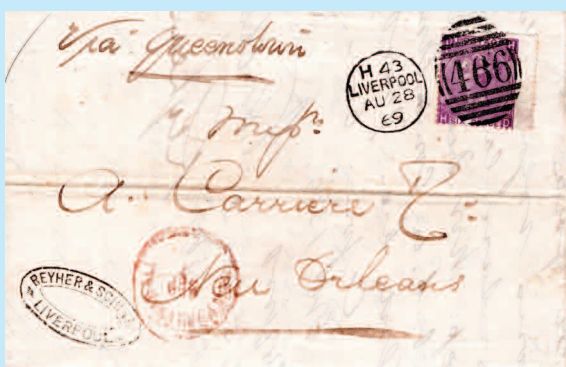 Via Queenstown
H 43
LIVERPOOL
AU 28
69
466
Mess.rs
A. Carriere
New Orleans
REYHER &
LIVERPOOL